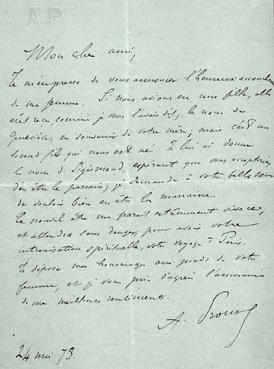 AP
Mon cher ami,
Je m'empresse de vous annoncer l'heureux
de ma femme. Si nous avions eu une fille, elle
comme je vous l'avais dit, le nom de
en souvenir de votre mère; mais c'est un
second fils qui nous est né. Je lui ai donné
le nom de Sigismond, espérant que vous
être le parrain; je demande à votre belle
de vouloir bien en être la marraine.
Le nouvel être me paraît vivace,
et attendra sans danger, pour avoir votre
intronisation spirituelle, votre voyage à Paris.
Je dépose mes hommages aux pieds de votre
femme, et je vous prie d'agréer l'assurance
de mes meilleurs sentiments.
A. Proust
24 mai 73.